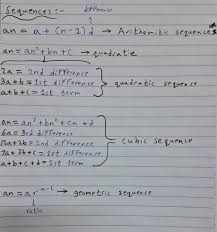 Sequences:-
difference
an = a + (n-1)d → Arithmitic sequences
an = an² + bn + c → quadratic
2a = 2nd difference
3a + b = 1st difference
a + b + c = 1st term
quadratic sequence
an = an³ + bn² + cn + d
6a = 3rd difference
12a + 2b = 2nd difference
7a + 3b + c = 1st difference
a + b + c + d = 1st term
cubic sequence
an = a r^n-1 → geometric sequence
ratio